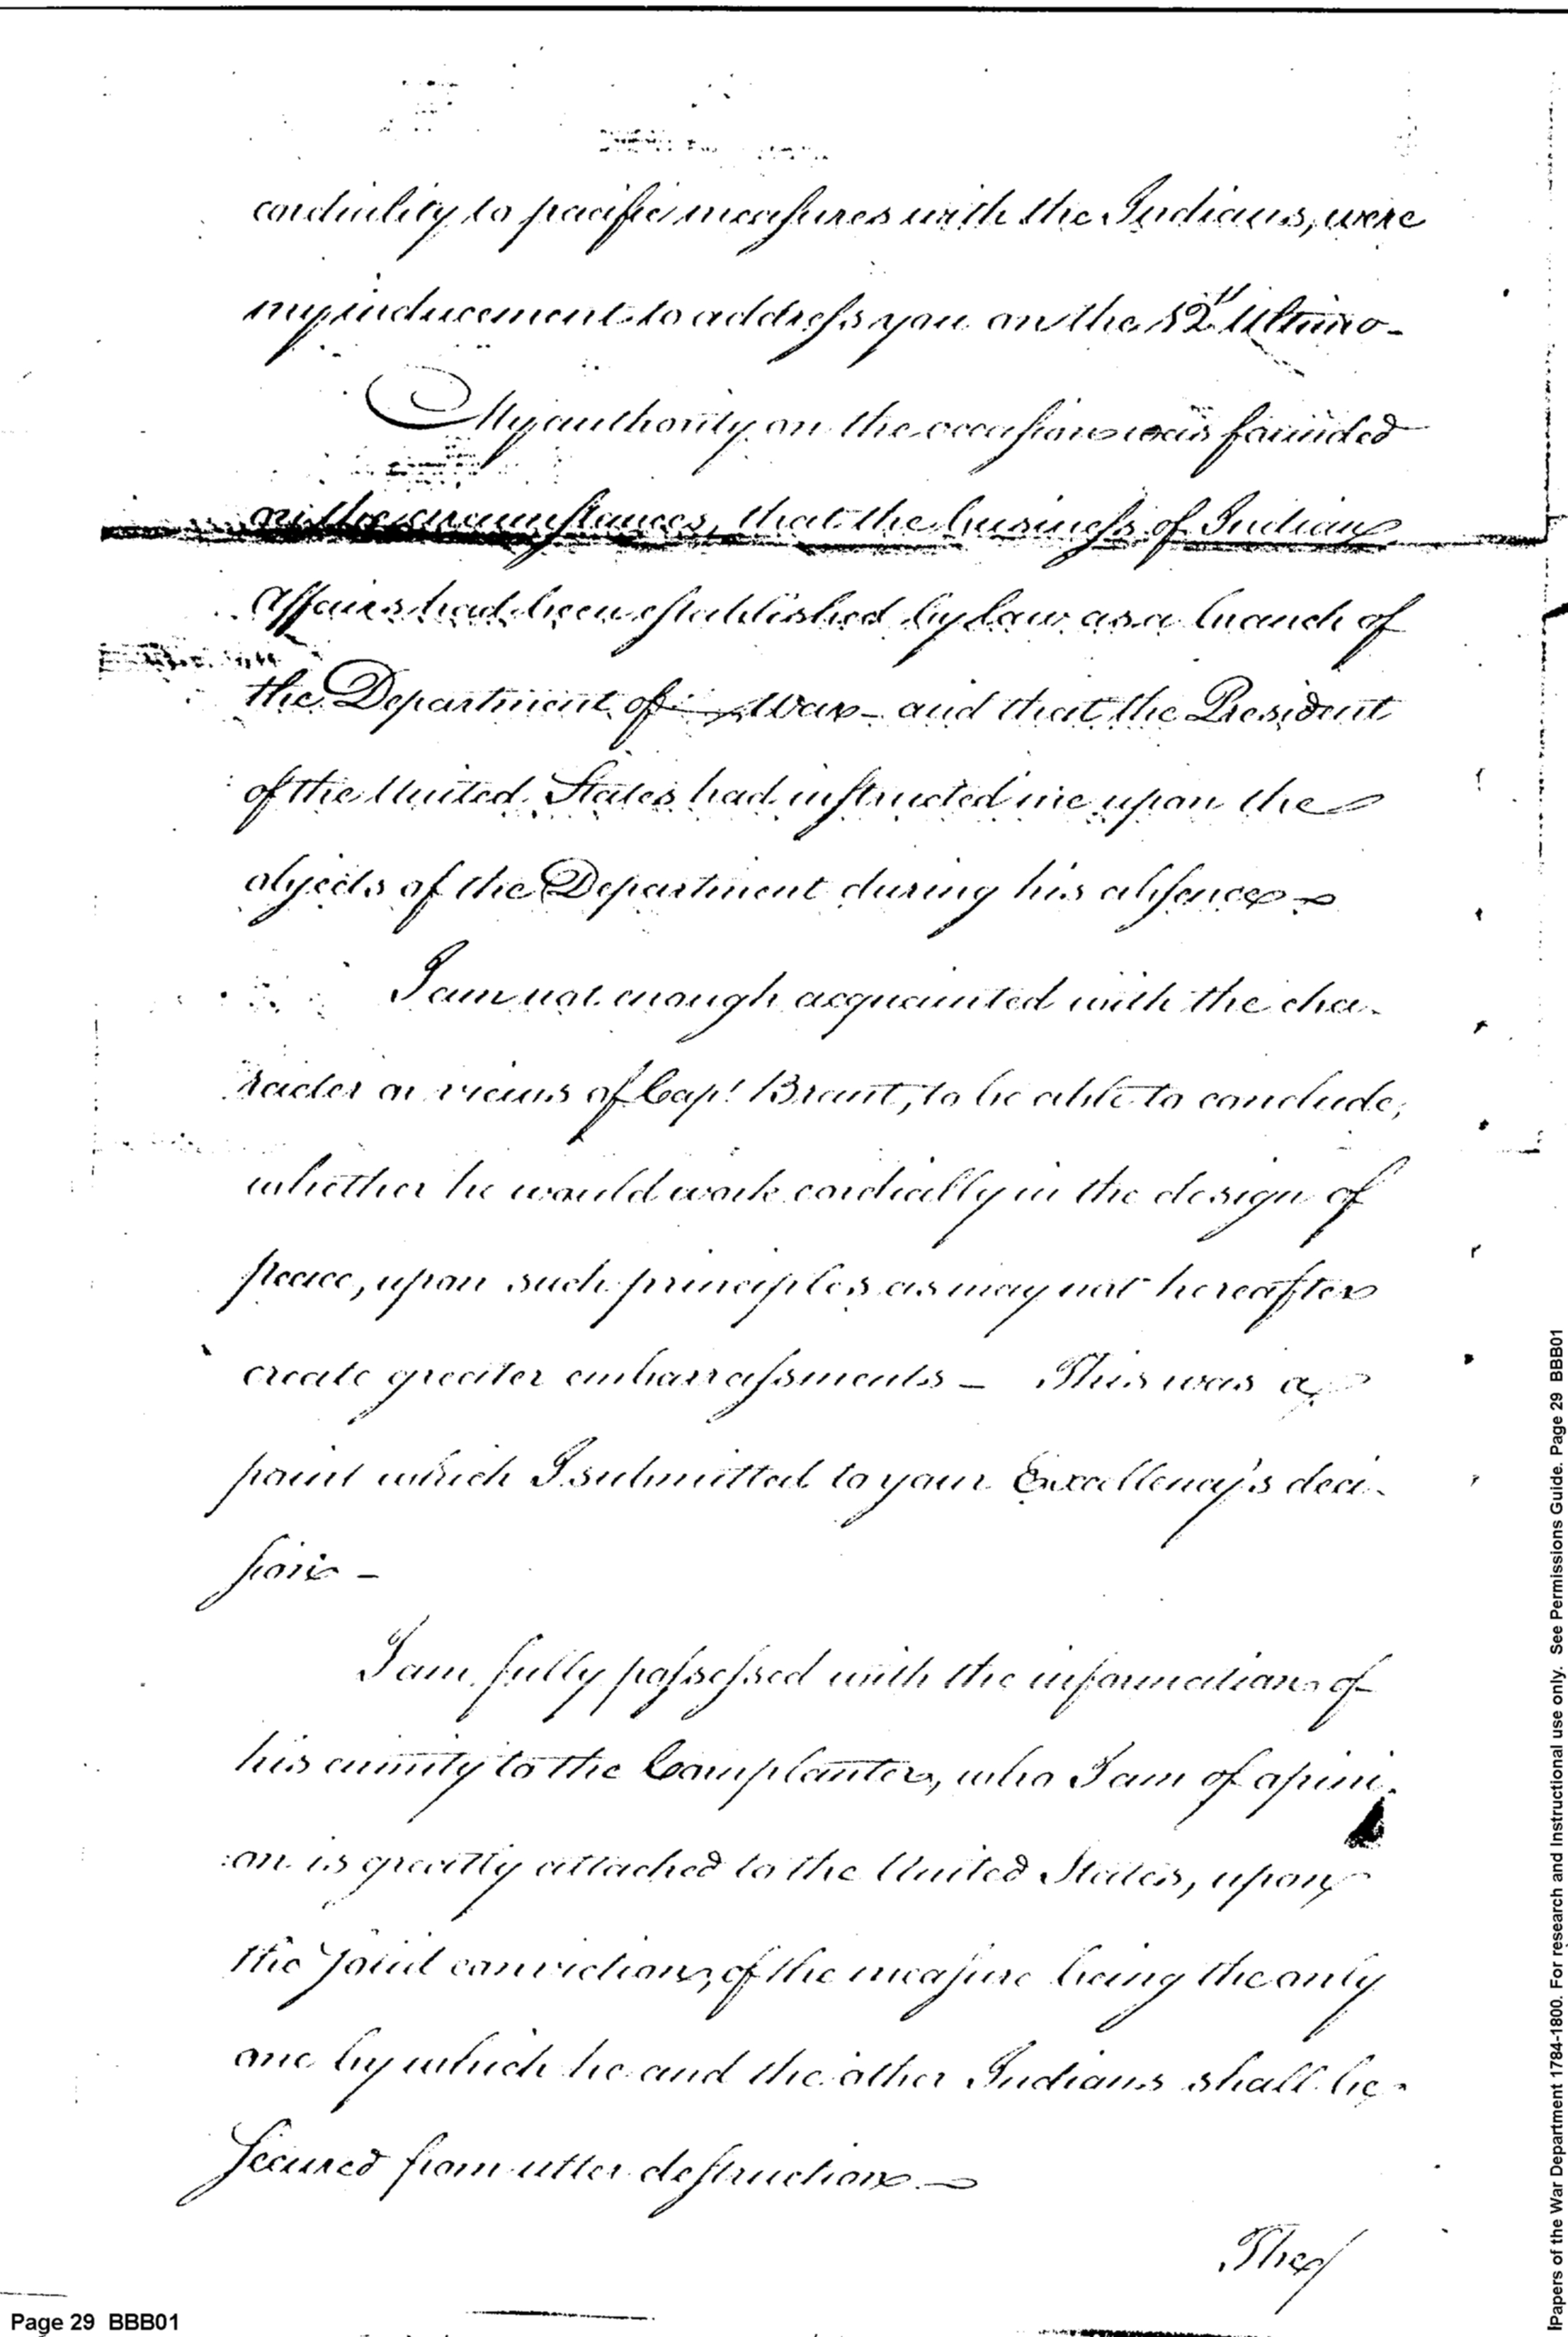 cordiality to pacific measures with the Indians, were
my inducement to address you on the 12th Ultimo -
My authority on the occasion was founded
on the circumstances, that the business of Indian
affairs had been established by law as a branch of
the Department of War - and that the President
of the United States had instructed me upon the
objects of the Department during his absence -
I am not enough acquainted with the cha-
racter or views of Capt Brant, to be able to conclude,
whether he would work cordially in the design of
peace, upon such principles as may not hereafter
create greater embarrassments - This was a
point which I submitted to your Excellency's deci-
sion -
I am fully possessed with the information of
his enmity to the Cornplanter, who I am of opini-
:on is greatly attached to the United States, upon
the joint conviction, of the measure being the only
one by which he and the other Indians shall be
secured from utter destruction -
The/
Page 29 BBB01
Papers of the War Department 1784-1800. For research and Instructional use only. See Permissions Guide. Page 29 BBB01